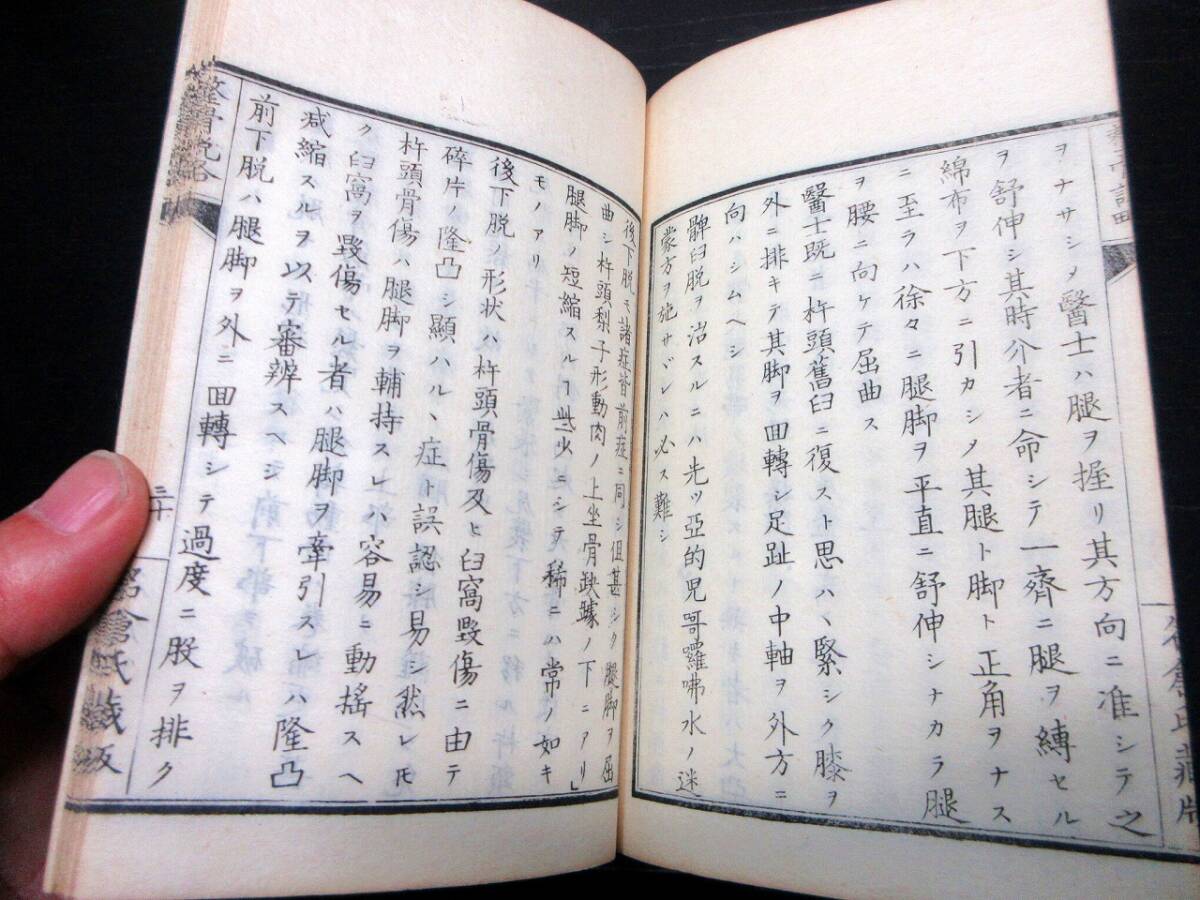 ヲナサシメ醫士ハ腿ヲ握リ其方向ニ准シテ之
ヲ舒伸シ其時介者ニ命シテ一齊ニ腿ヲ縛セル
綿布ヲ下方ニ引カシメ其腿ト脚ト正角ヲナス
ニ至ラハ徐々ニ腿脚ヲ平直ニ舒伸シナカラ腿
ヲ腰ニ向ケテ屈曲ス
醫士既ニ杵頭舊臼ニ復スト思ハヽ緊シク膝ヲ
外ニ排キテ其脚ヲ回轉シ足趾ノ中軸ヲ外方ニ
向ハシムヘシ
髀臼脱ヲ治スルニハ先ツ亞的児哥羅咈水ノ迷
蒙方ヲ施サヾレハ必ス難シ
後下脱モ諸症皆前症ニ同シ但甚シク腿脚ヲ屈
曲シ杵頭梨子形動肉ノ上坐骨趺蹠ノ下ニアリ
腿脚ノ短縮スルヿ些少ニシテ稀ニハ常ノ如キ
モノアリ
後下脱ノ形状ハ杵頭骨傷及ヒ臼窩毀傷ニ由テ
碎片ノ隆凸シ顯ハルヽ症ト誤認シ易シ然レ𪜈
杵頭骨傷ハ腿脚ヲ輔持スレハ容易ニ動揺スヘ
ク臼窩ヲ毀傷セル者ハ腿脚ヲ牽引スレハ隆凸
減縮スルヲ以テ審辨スヘシ
前下脱ハ腿脚ヲ外ニ回轉シテ過度ニ股ヲ排ク
整骨説畧
三十
氏藏版